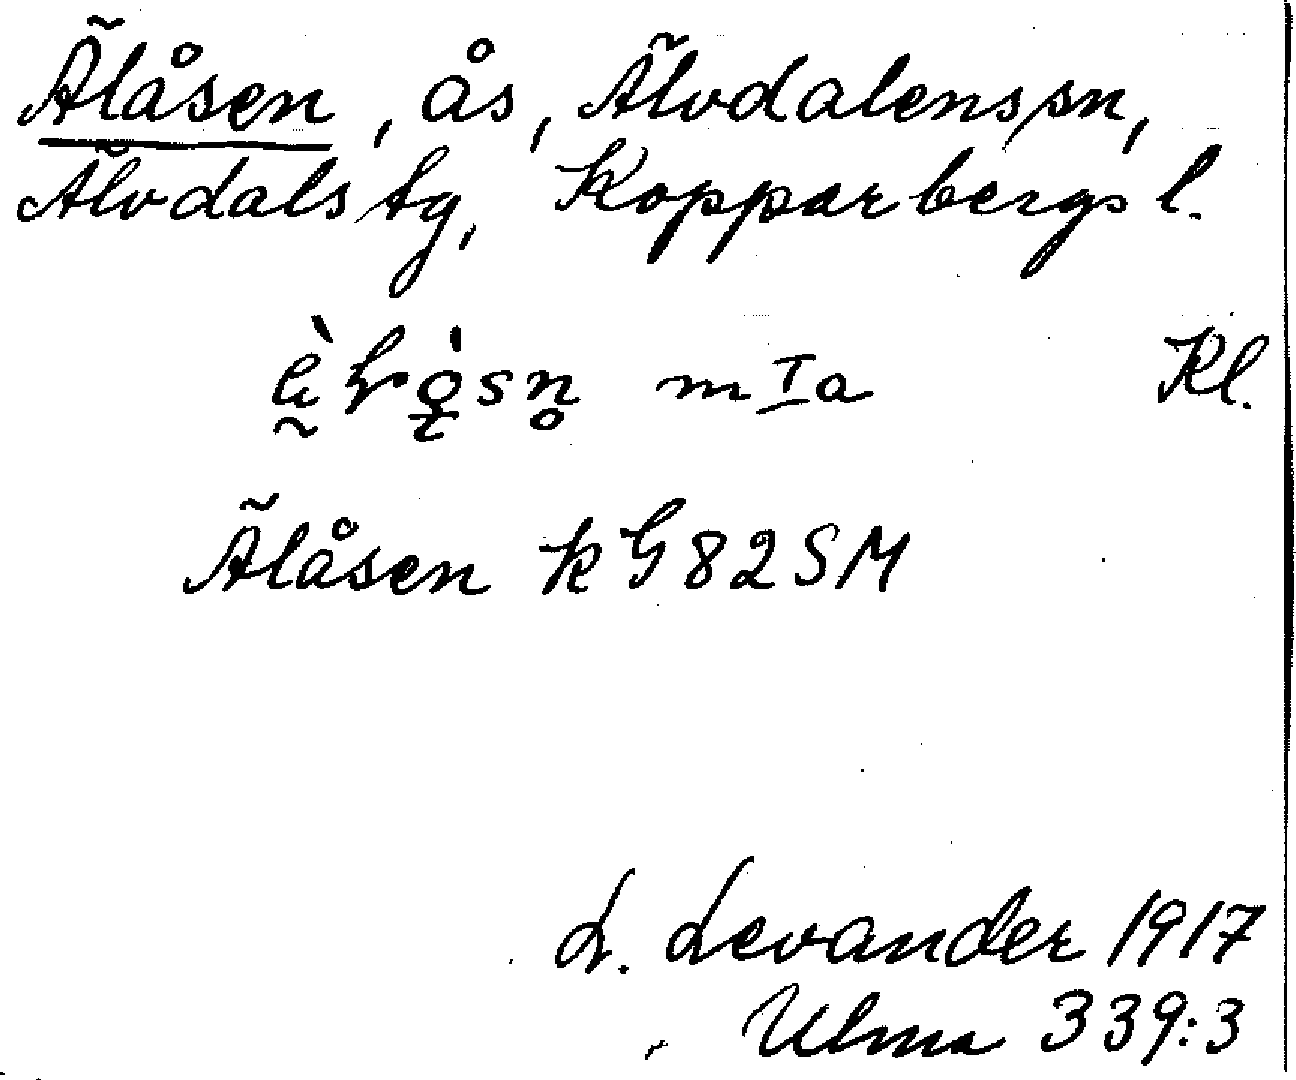 Älåsen, ås, Älvdalens sn,
Älvdals tg, Kopparbergs l.
m I a Kl.
Älåsen k G 82 SM
L. Levander 1917
Ulma 339:3